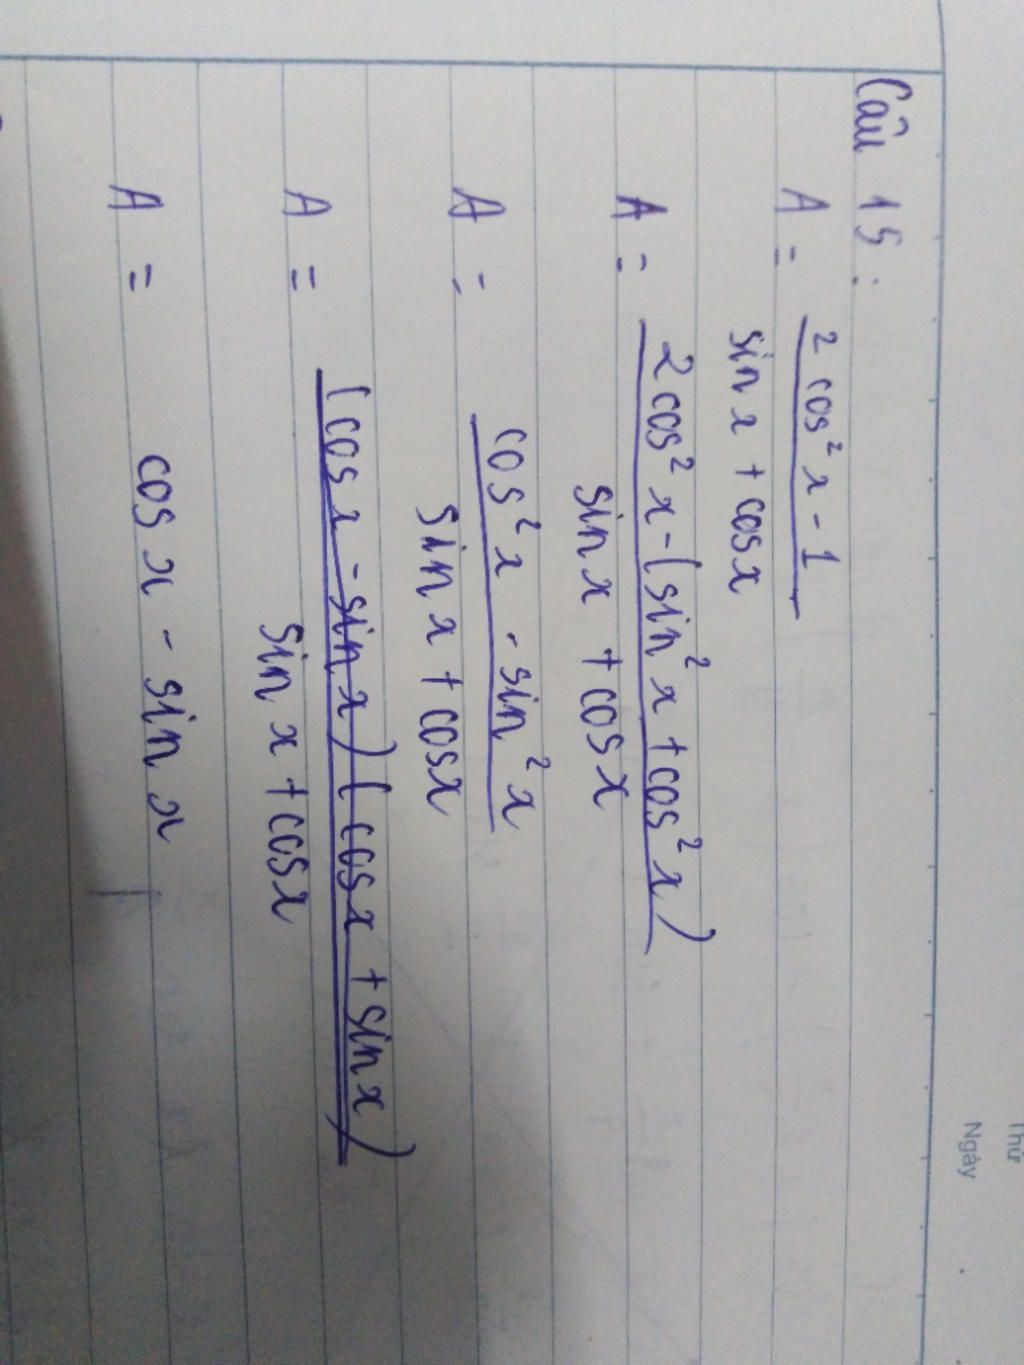 Thứ
Ngày
Câu 15:
A = (2 cos² x - 1) / (sin x + cos x)
A = (2 cos² x - (sin² x + cos² x)) / (sin x + cos x)
A = (cos² x - sin² x) / (sin x + cos x)
A = ((cos x - sin x)(cos x + sin x)) / (sin x + cos x)
A = cos x - sin x